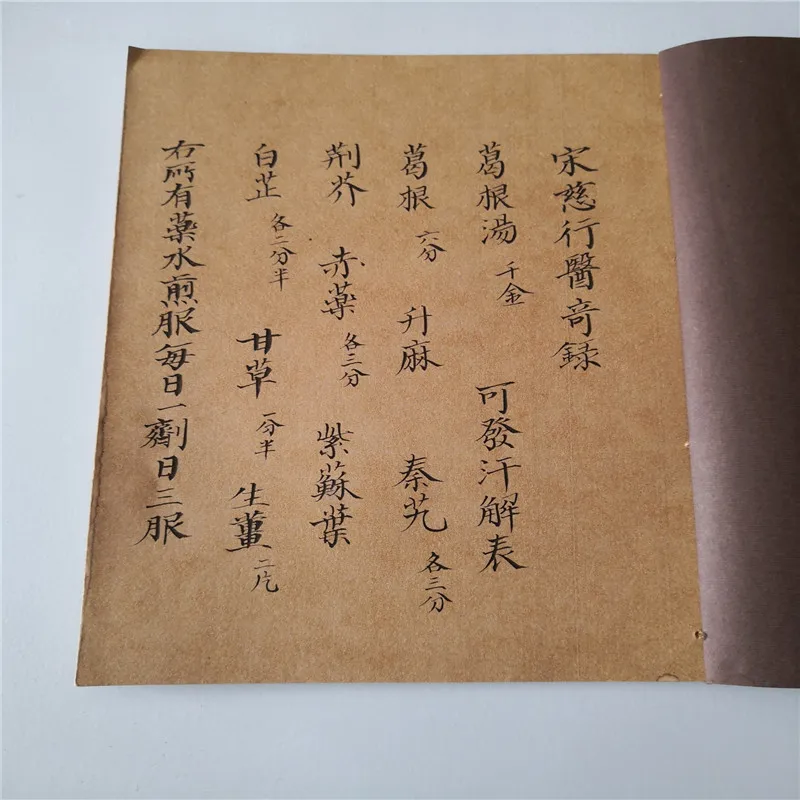 宋慈行醫奇録
葛根湯 千金 可發汗解表
葛根 六分 升麻 秦艽 各三分
荆芥 赤藥 各三分 紫蘇葉
白芷 各二分半 甘草 一分半 生薑 二片
右所有藥水煎服每日一劑日三服